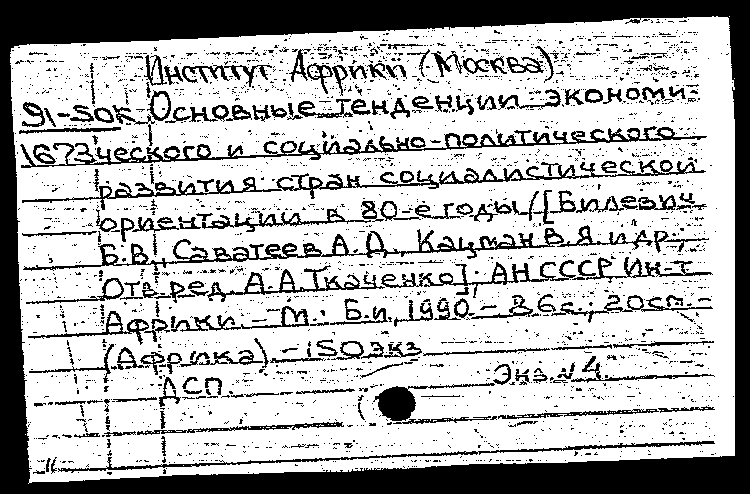 Институт Африки (Москва)
91-50к Основные тенденции экономи-
1673 ческого и социально-политического
развития стран социалистической
ориентации в 80-е годы / [Билевич
Б.В., Саватеев А.Д., Кацман В.Я. и др.;
Отв. ред. А.А.Ткаченко]; АН СССР, Ин-т
Африки. - М.: Б.и., 1990. - 86 с.; 20 см. -
(Африка). - 150 экз
ДСП. Экз. № 4.